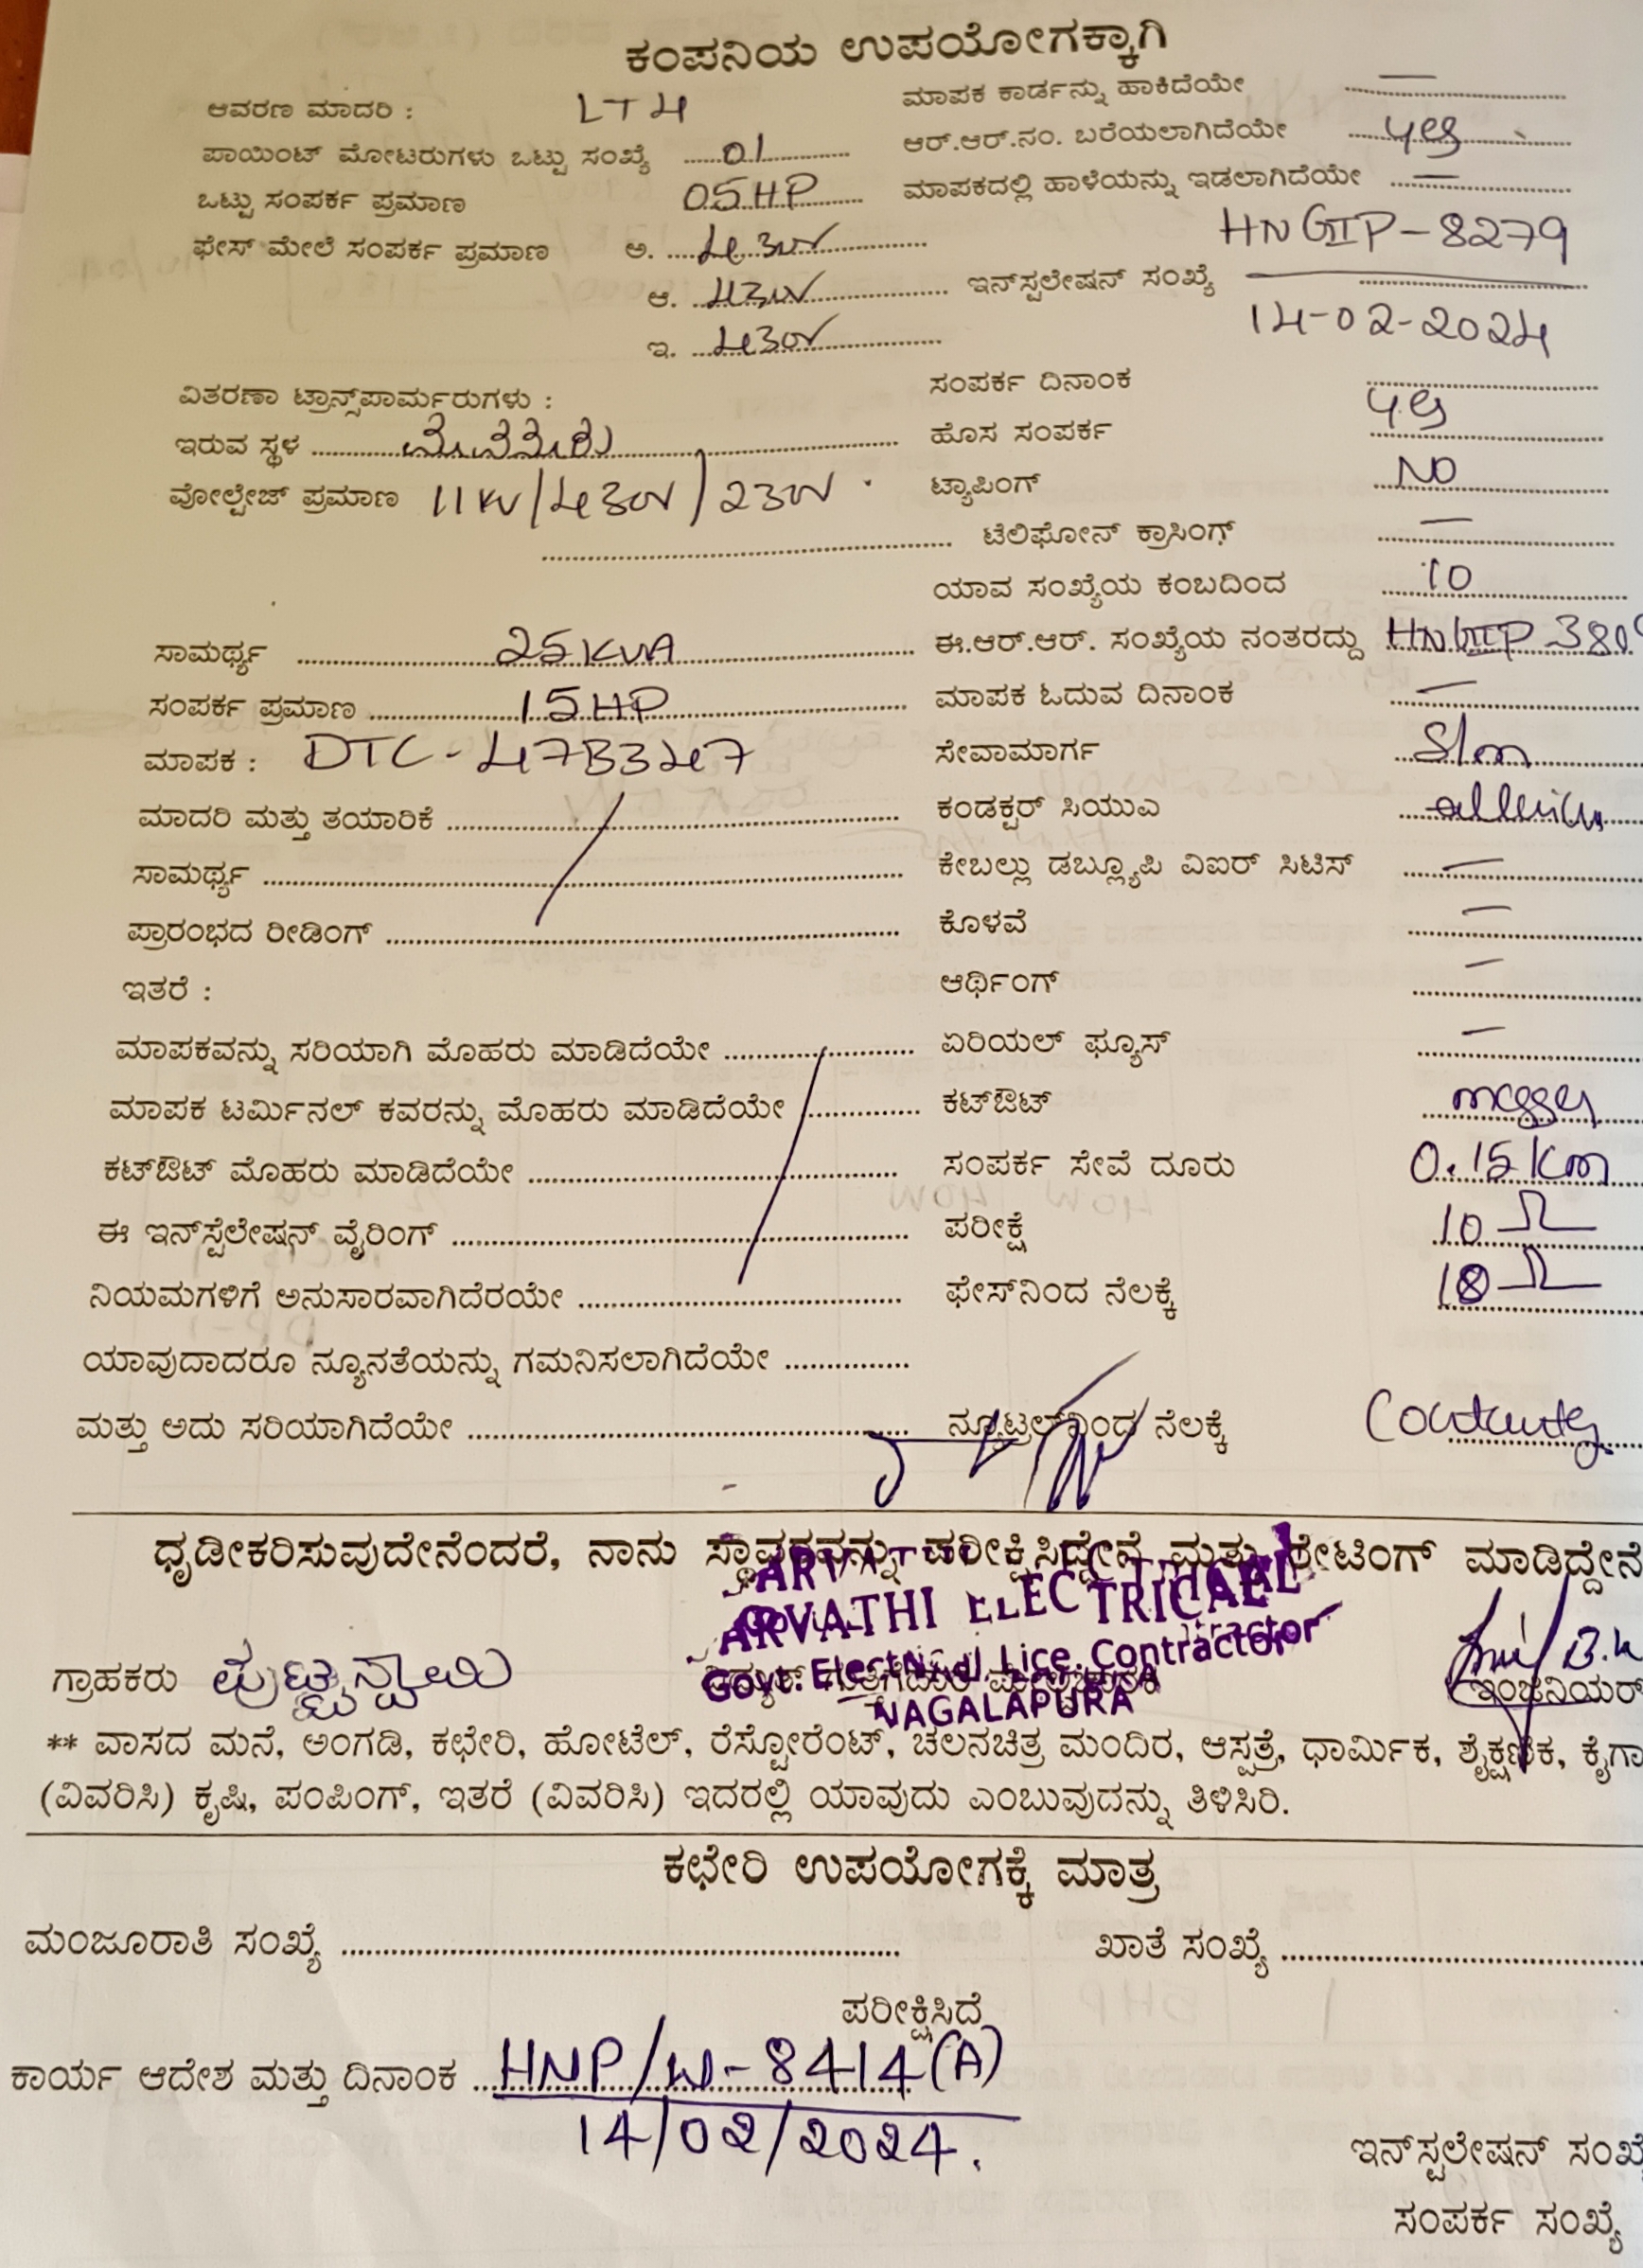 ಕಂಪನಿಯ ಉಪಯೋಗಕ್ಕಾಗಿ
ಆವರಣ ಮಾದರಿ : LT4
ಪಾಯಿಂಟ್ ಮೋಟರುಗಳು ಒಟ್ಟು ಸಂಖ್ಯೆ 01
ಒಟ್ಟು ಸಂಪರ್ಕ ಪ್ರಮಾಣ 05HP
ಫೇಸ್ ಮೇಲೆ ಸಂಪರ್ಕ ಪ್ರಮಾಣ ಅ. 430V
ಆ. 430V
ಇ. 430V
ಮಾಪಕ ಕಾರ್ಡನ್ನು ಹಾಕಿದೆಯೇ —
ಆರ್.ಆರ್.ನಂ. ಬರೆಯಲಾಗಿದೆಯೇ yes
ಮಾಪಕದಲ್ಲಿ ಹಾಳೆಯನ್ನು ಇಡಲಾಗಿದೆಯೇ —
HNGIIP-8279
ಇನ್‌ಸ್ಪಲೇಷನ್ ಸಂಖ್ಯೆ
14-02-2024
ವಿತರಣಾ ಟ್ರಾನ್ಸ್‌ಪಾರ್ಮರುಗಳು :
ಇರುವ ಸ್ಥಳ
ವೋಲ್ಟೇಜ್ ಪ್ರಮಾಣ 11KV/430V/230V
ಸಾಮರ್ಥ್ಯ 25KVA
ಸಂಪರ್ಕ ಪ್ರಮಾಣ 15HP
ಮಾಪಕ : DTC-47B347
ಮಾದರಿ ಮತ್ತು ತಯಾರಿಕೆ
ಸಾಮರ್ಥ್ಯ
ಪ್ರಾರಂಭದ ರೀಡಿಂಗ್
ಇತರೆ :
ಮಾಪಕವನ್ನು ಸರಿಯಾಗಿ ಮೊಹರು ಮಾಡಿದೆಯೇ
ಮಾಪಕ ಟರ್ಮಿನಲ್ ಕವರನ್ನು ಮೊಹರು ಮಾಡಿದೆಯೇ
ಕಟ್‌ಔಟ್ ಮೊಹರು ಮಾಡಿದೆಯೇ
ಈ ಇನ್‌ಸ್ಪೆಲೇಷನ್ ವೈರಿಂಗ್
ನಿಯಮಗಳಿಗೆ ಅನುಸಾರವಾಗಿದೆರಯೇ
ಯಾವುದಾದರೂ ನ್ಯೂನತೆಯನ್ನು ಗಮನಿಸಲಾಗಿದೆಯೇ
ಮತ್ತು ಅದು ಸರಿಯಾಗಿದೆಯೇ
ಸಂಪರ್ಕ ದಿನಾಂಕ
ಹೊಸ ಸಂಪರ್ಕ yes
ಟ್ಯಾಪಿಂಗ್ NO
ಟೆಲಿಫೋನ್ ಕ್ರಾಸಿಂಗ್ —
ಯಾವ ಸಂಖ್ಯೆಯ ಕಂಬದಿಂದ 10
ಈ.ಆರ್.ಆರ್. ಸಂಖ್ಯೆಯ ನಂತರದ್ದು HNGIIP
ಮಾಪಕ ಓದುವ ದಿನಾಂಕ —
ಸೇವಾಮಾರ್ಗ
ಕಂಡಕ್ಟರ್ ಸಿಯುಎ
ಕೇಬಲ್ಲು ಡಬ್ಲ್ಯೂಪಿ ವಿಐರ್ ಸಿಟಿಸ್ —
ಕೊಳವೆ —
ಆರ್ಥಿಂಗ್ —
ಏರಿಯಲ್ ಫ್ಯೂಸ್ —
ಕಟ್‌ಔಟ್
ಸಂಪರ್ಕ ಸೇವೆ ದೂರು 0.15Km
ಪರೀಕ್ಷೆ 10 Ω
ಫೇಸ್‌ನಿಂದ ನೆಲಕ್ಕೆ 10 Ω
ನ್ಯೂಟ್ರಲ್‌ನಿಂದ ನೆಲಕ್ಕೆ
ಧೃಡೀಕರಿಸುವುದೇನೆಂದರೆ, ನಾನು ಸ್ಥಾವರವನ್ನು ಪರೀಕ್ಷಿಸಿದ್ದೇನೆ ಮತ್ತು ರೇಟಿಂಗ್ ಮಾಡಿದ್ದೇನೆ
ARVATHI ELECTRICAL
Govt. Electrical Lice. Contractor
NAGALAPURA
ಗ್ರಾಹಕರು ಪುಟ್ಟಸ್ವಾಮಿ
ಇಂಜಿನಿಯರ್
** ವಾಸದ ಮನೆ, ಅಂಗಡಿ, ಕಛೇರಿ, ಹೋಟೆಲ್, ರೆಸ್ಟೋರೆಂಟ್, ಚಲನಚಿತ್ರ ಮಂದಿರ, ಆಸ್ಪತ್ರೆ, ಧಾರ್ಮಿಕ, ಶೈಕ್ಷಣಿಕ, ಕೈಗಾ
(ವಿವರಿಸಿ) ಕೃಷಿ, ಪಂಪಿಂಗ್, ಇತರೆ (ವಿವರಿಸಿ) ಇದರಲ್ಲಿ ಯಾವುದು ಎಂಬುವುದನ್ನು ತಿಳಿಸಿರಿ.
ಕಛೇರಿ ಉಪಯೋಗಕ್ಕೆ ಮಾತ್ರ
ಮಂಜೂರಾತಿ ಸಂಖ್ಯೆ
ಖಾತೆ ಸಂಖ್ಯೆ
ಪರೀಕ್ಷಿಸಿದೆ
ಕಾರ್ಯ ಆದೇಶ ಮತ್ತು ದಿನಾಂಕ HNP/W-8414(A)
14/02/2024.
ಇನ್‌ಸ್ಪಲೇಷನ್ ಸಂಖ್ಯೆ
ಸಂಪರ್ಕ ಸಂಖ್ಯೆ